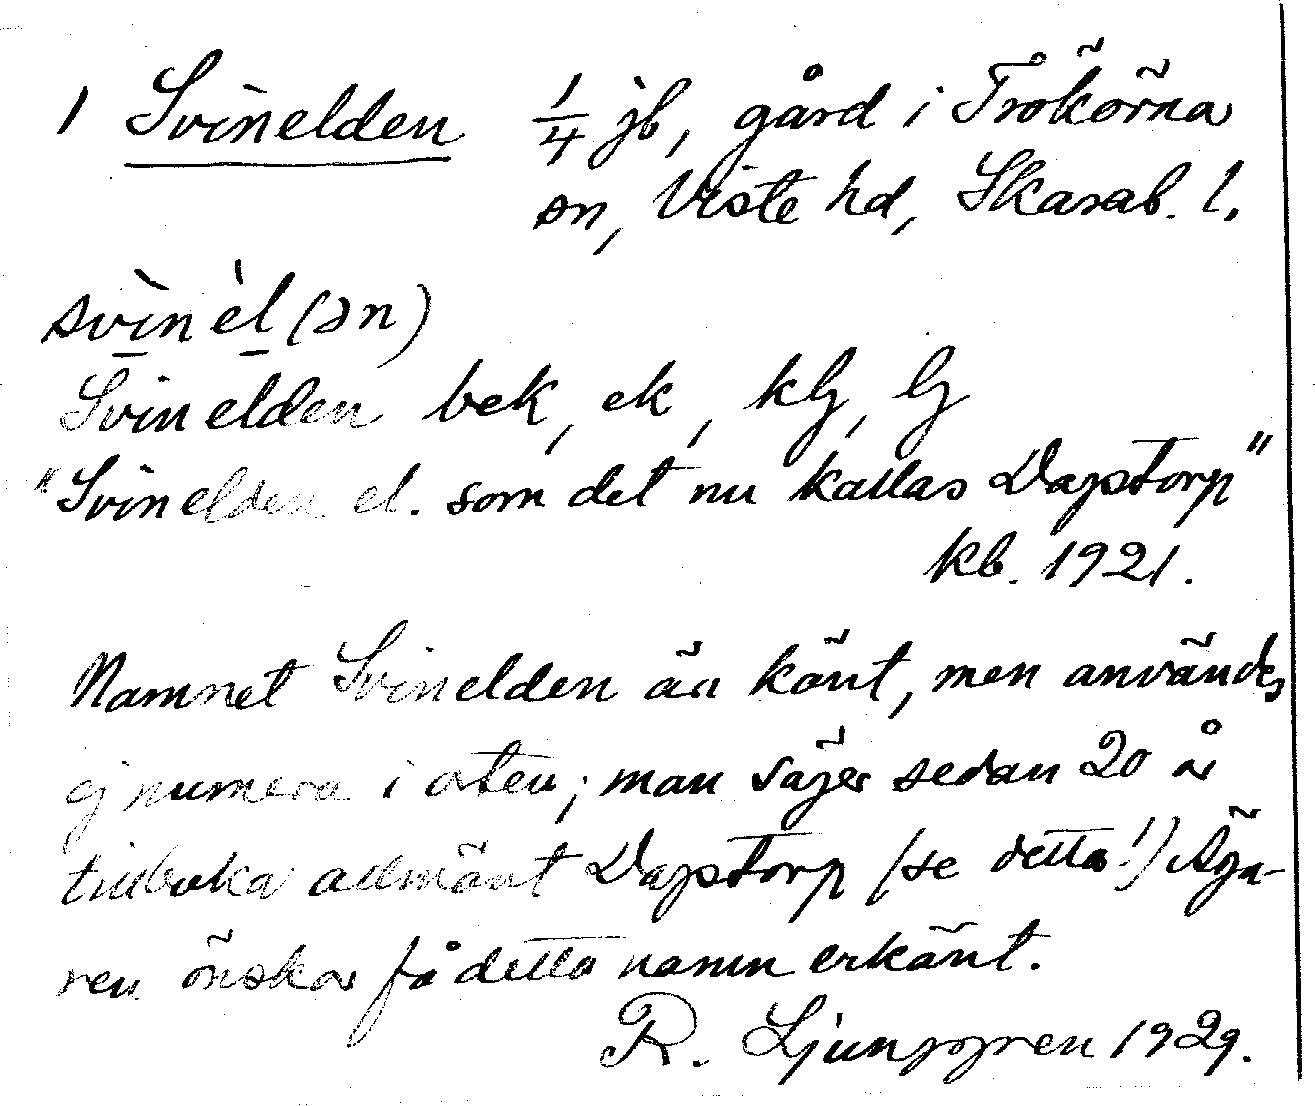 1 Svinelden 1/4 jb, gård i Trökörna
sn, Viste hd, Skarab. l.
svìnèl(ən)
Svinelden bek, ek, klj, lj
"Svinelden el. som det nu kallas Dagstorp"
kb. 1921.
Namnet Svinelden är känt, men användes
ej numera i orten; man säjer sedan 20 år
tillbaka allmänt Dagstorp (se detta!) Äga-
ren önskar få detta namn erkänt.
R. Ljunggren 1929.